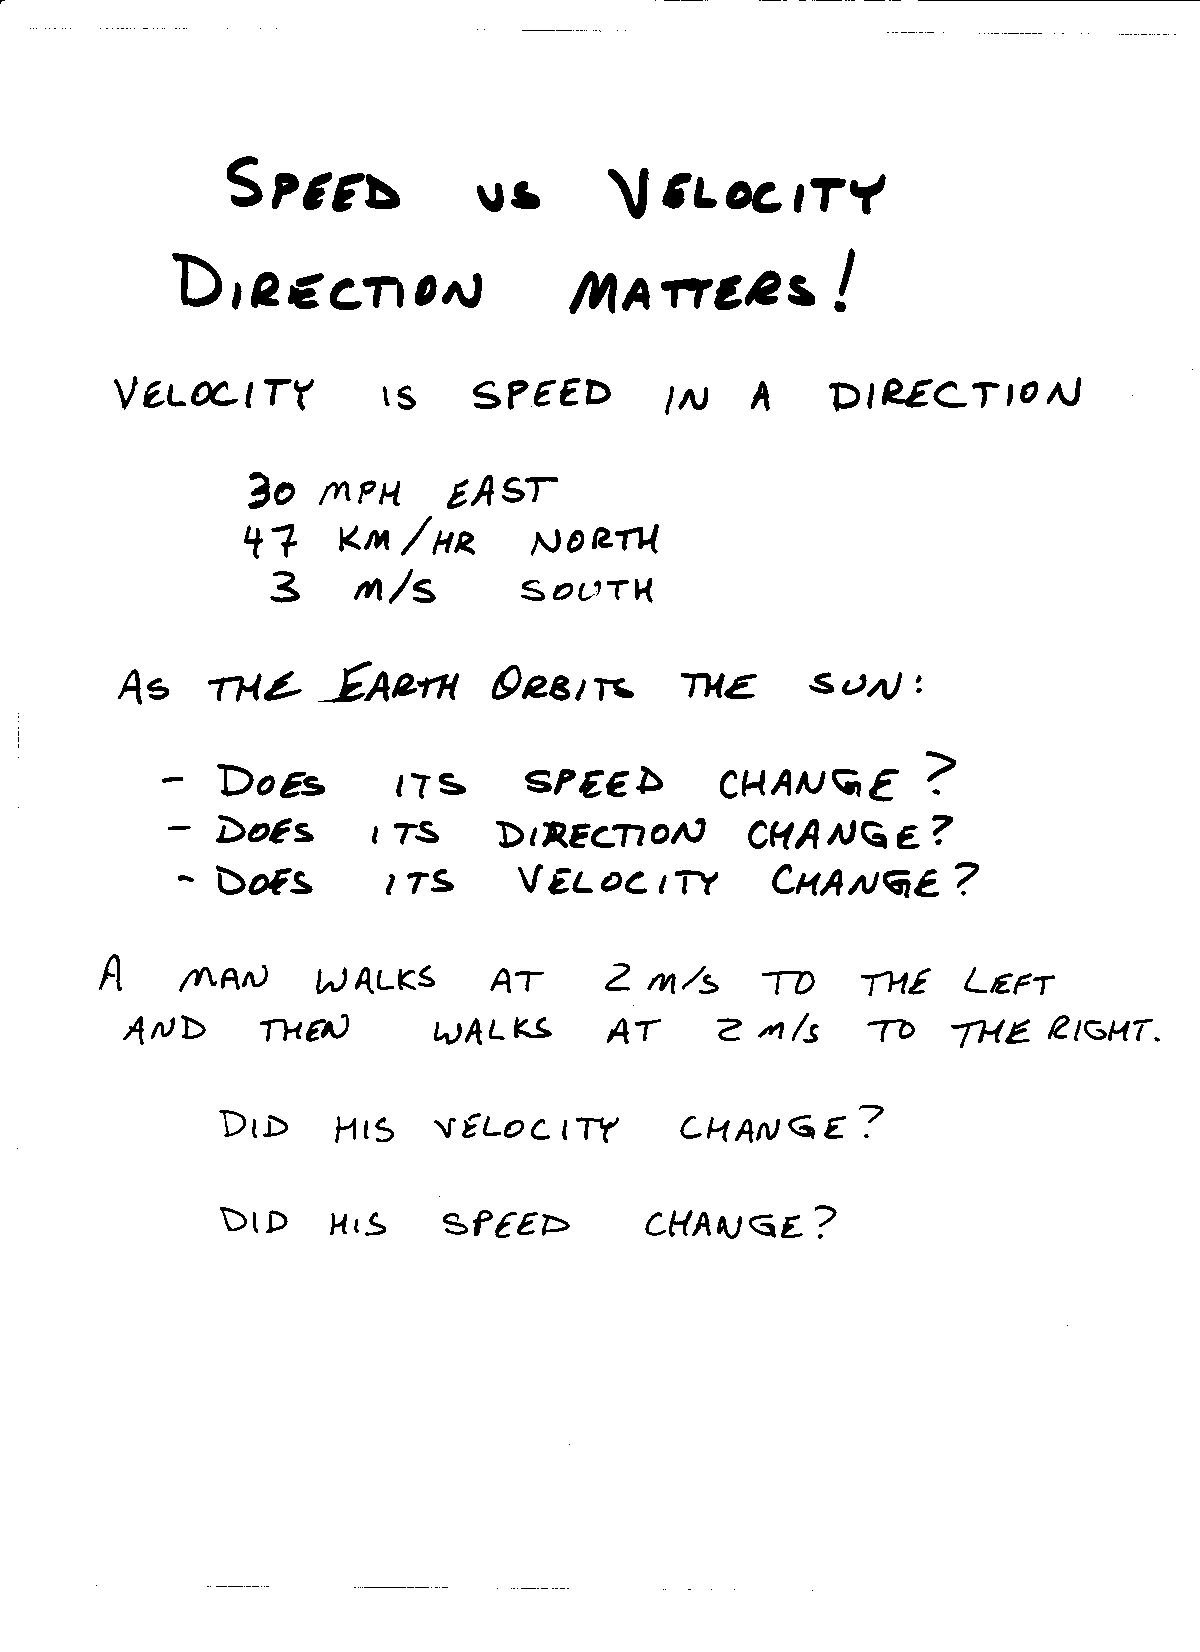 SPEED vs VELOCITY
DIRECTION MATTERS!
VELOCITY IS SPEED IN A DIRECTION
30 MPH EAST
47 KM/HR NORTH
3 M/S SOUTH
AS THE EARTH ORBITS THE SUN:
- DOES ITS SPEED CHANGE?
- DOES ITS DIRECTION CHANGE?
- DOES ITS VELOCITY CHANGE?
A MAN WALKS AT 2 M/S TO THE LEFT
AND THEN WALKS AT 2 M/S TO THE RIGHT.
DID HIS VELOCITY CHANGE?
DID HIS SPEED CHANGE?